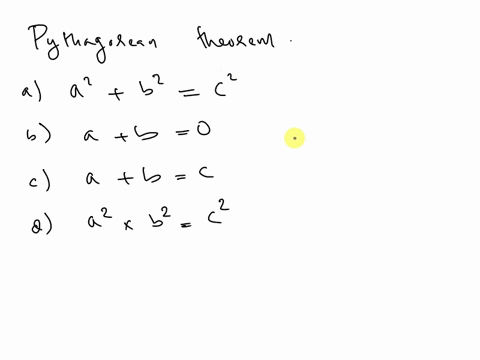 Pythagorean theorem.
a) a² + b² = c²
b) a + b = 0
c) a + b = c
d) a² × b² = c²